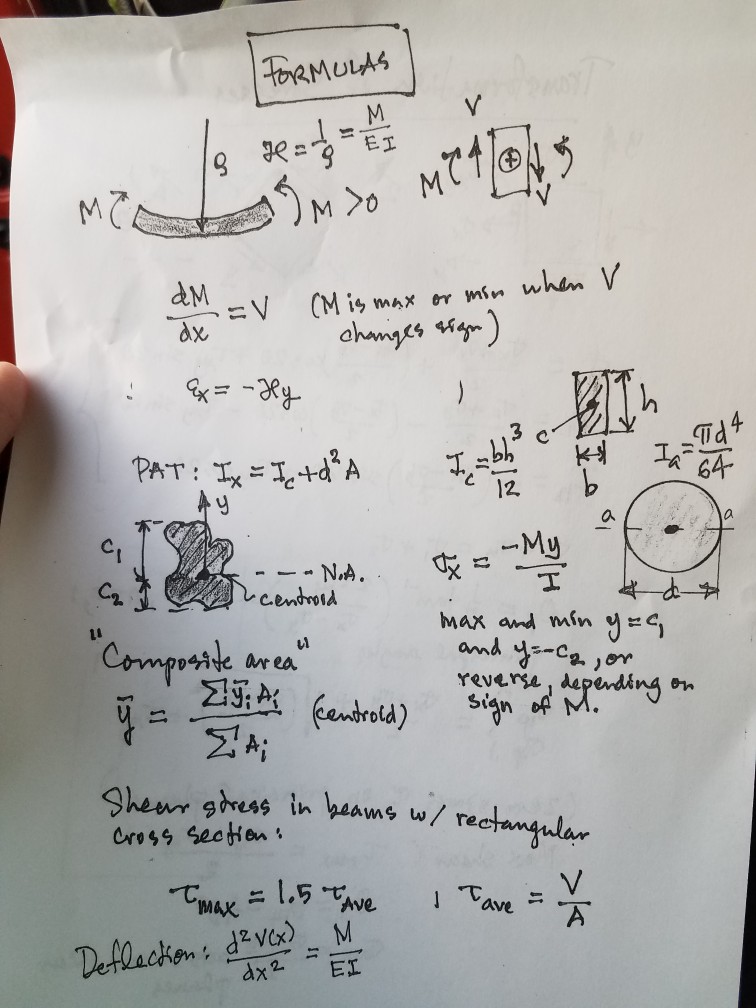 FORMULAS
ϰ = 1/ρ = M/EI
ρ
M
M > 0
V
M
+
V
dM/dx = V (M is max or min when V
changes sign)
εx = -ϰy
h
c
b
PAT: Ix = Ic + d²A
Ic = bh³/12
Ia = πd⁴/64
y
c1
c2
N.A.
centroid
a
a
d
σx = -My/I
max and min y = c1
and y = -c2, or
reverse, depending on
sign of M.
"Composite area"
ȳ = Σȳi Ai / ΣAi (centroid)
Shear stress in beams w/ rectangular
cross section:
τmax = 1.5 τAve , τave = V/A
Deflection: d²V(x)/dx² = M/EI